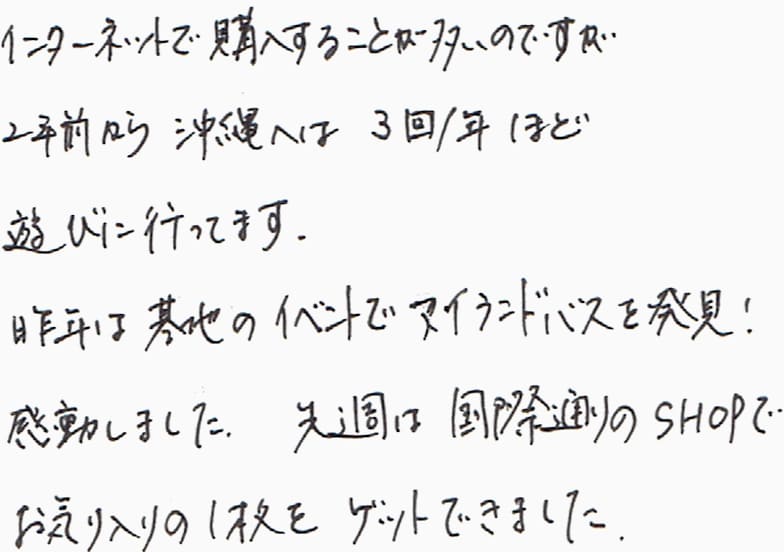 インターネットで購入することが多いのですが
2年前から 沖縄へは 3回/年 ほど
遊びに行ってます.
昨年は基地のイベントでアイランドバスを発見!
感動しました. 先週は国際通りのSHOPで
お気り入りの1枚をゲットできました.